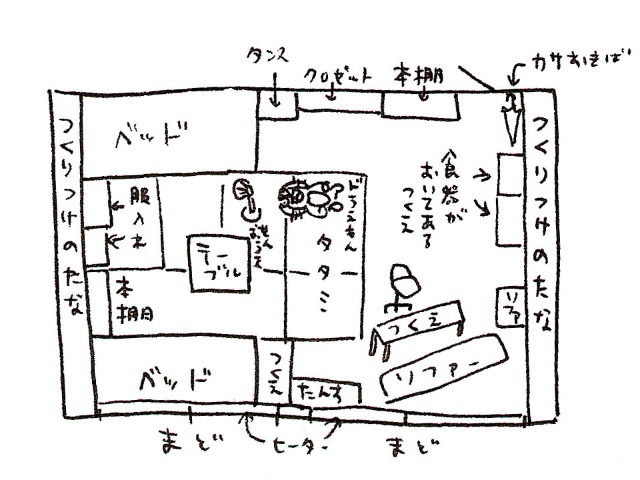 タンス
クロゼット
本棚
カサおきば
つくりつけのたな
ベッド
服入れ
本棚
テーブル
せんぷうき
ドラえもん
タタミ
食器が
おいてある
つくえ
つくりつけのたな
ソファ
つくえ
ソファー
ベッド
つくえ
たんす
まど
ヒーター
まど